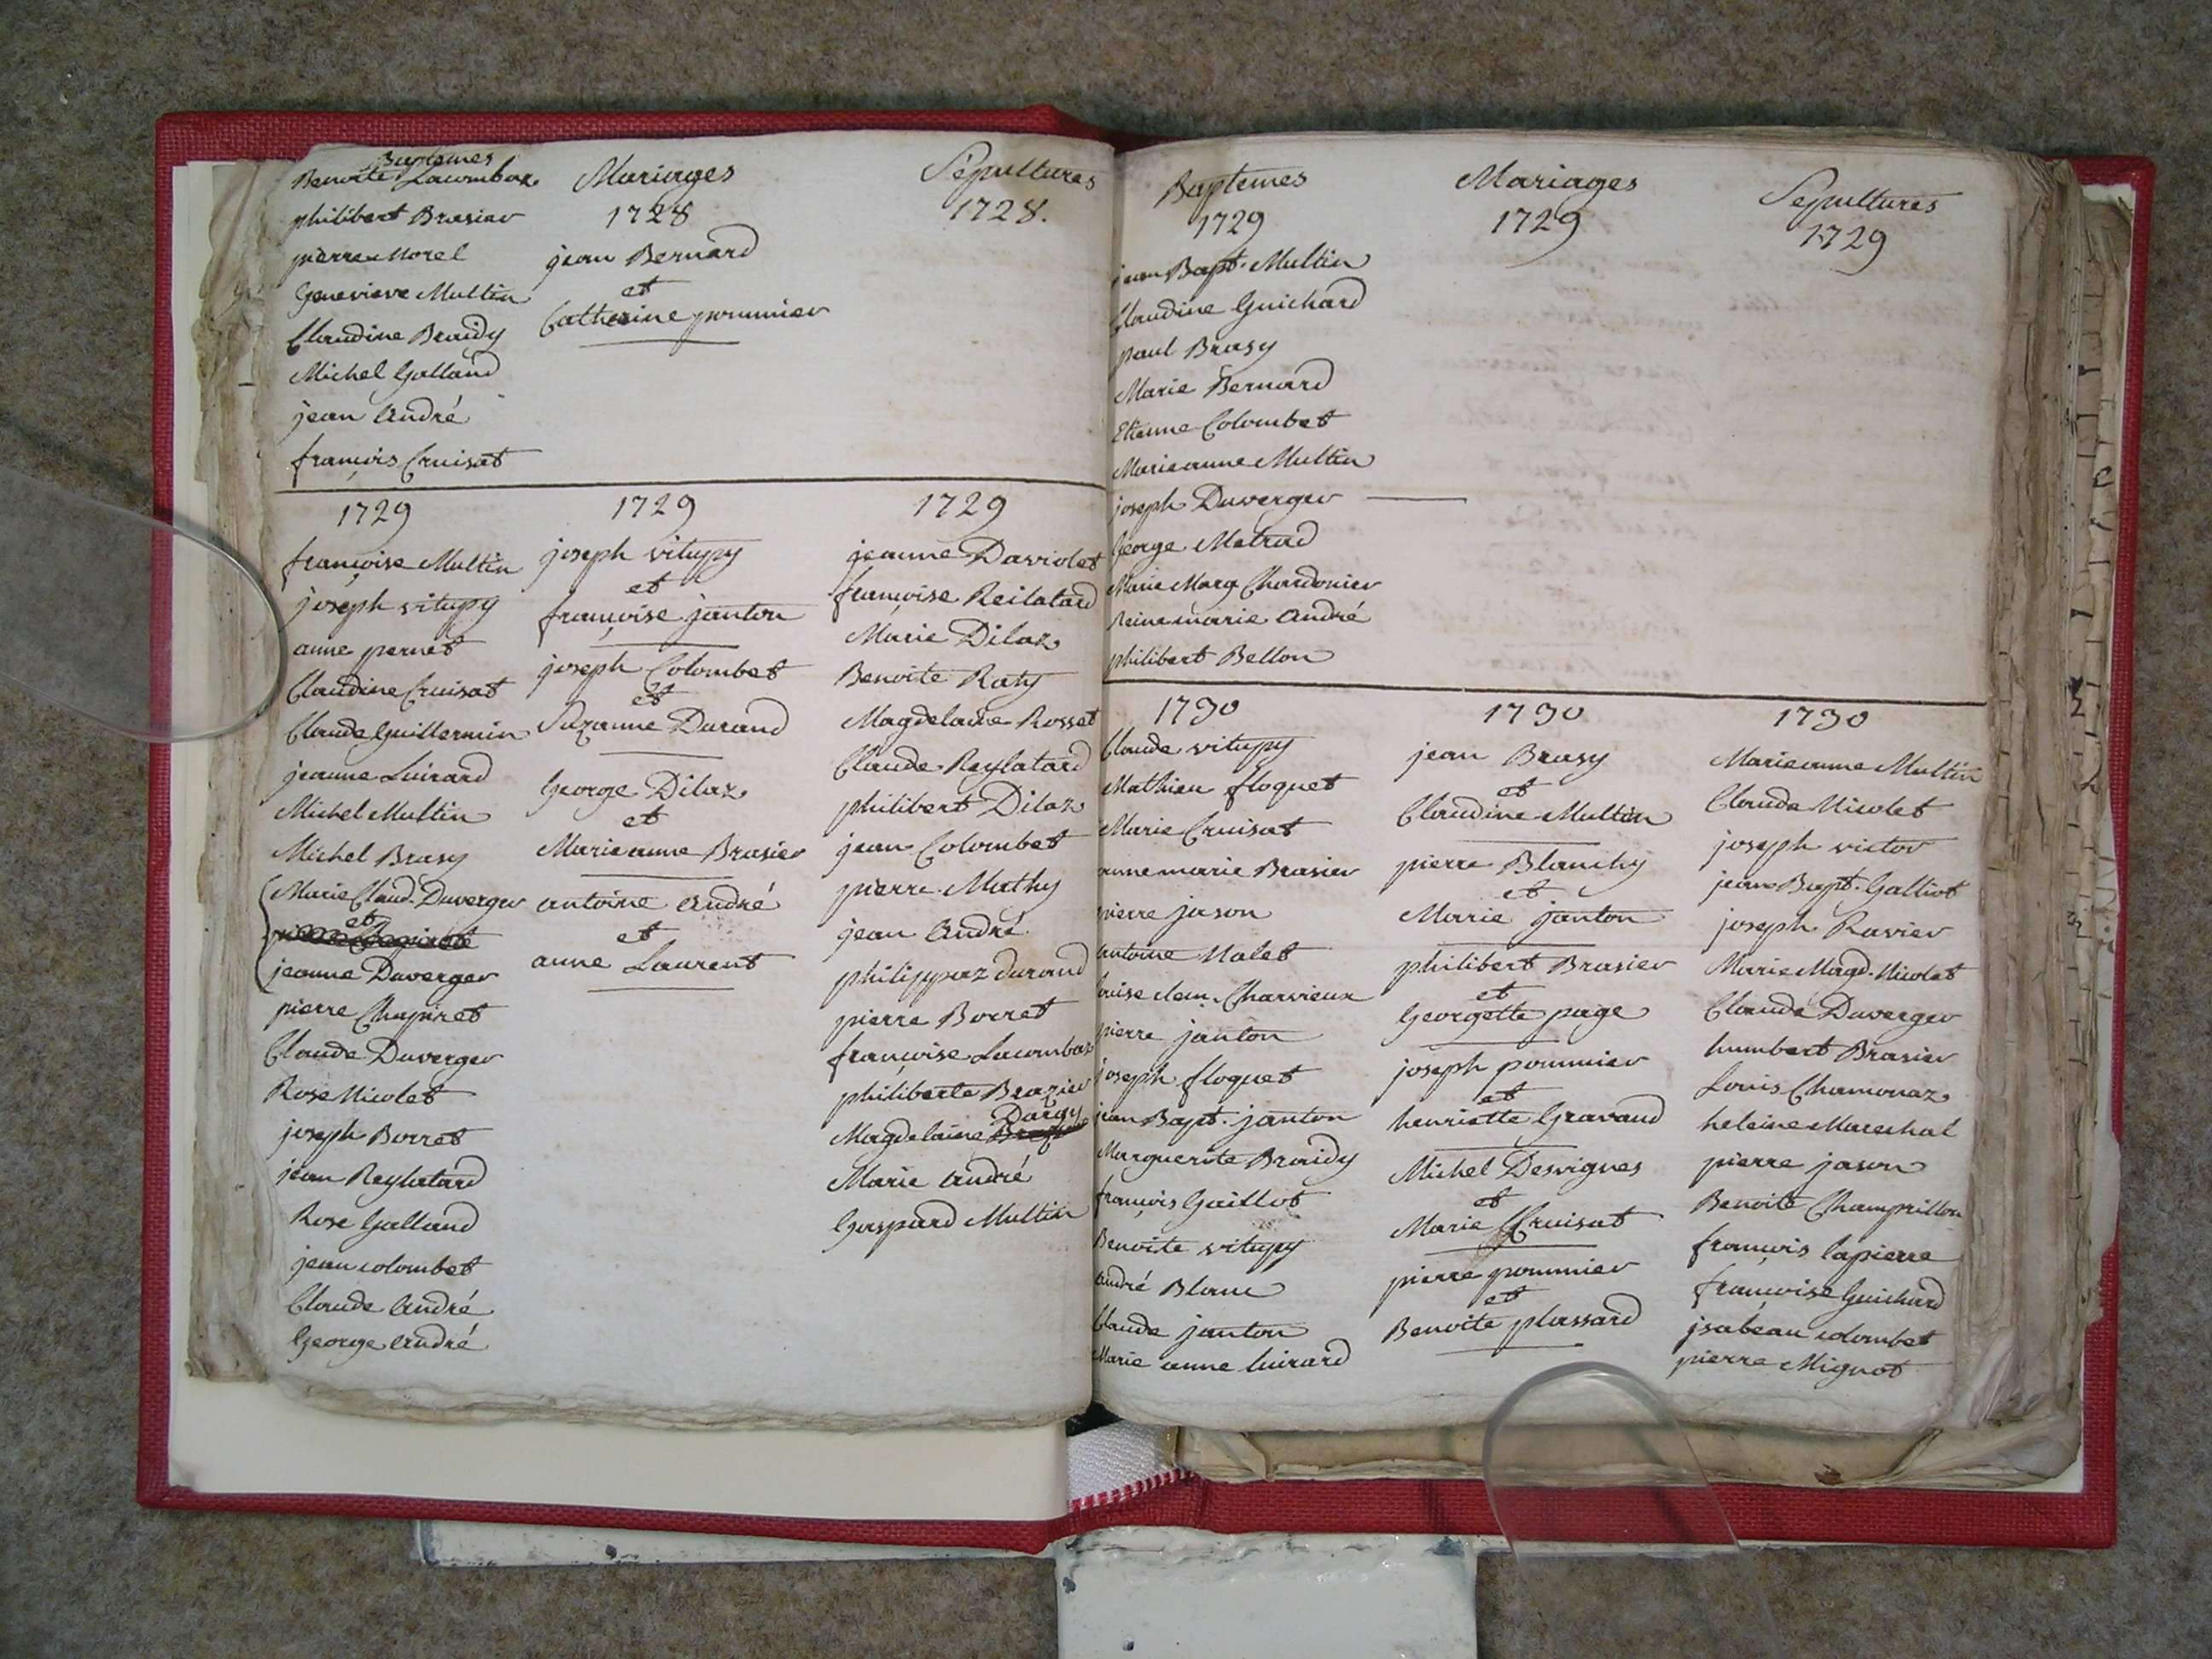 Baptemes
Benoite Lacombaz
philibert Brasier
pierre Morel
Genevieve Multin
Claudine Braidy
Michel Galland
jean André
françois Cruisat
Mariages
1728
jean Bernard
et
Catherine pommier
Sépultures
1728.
1729
françoise Multin
joseph vitupy
anne pernet
Claudine Cruisat
Claude Guillermin
jeanne Luirard
Michel Multin
Michel Brasy
Marie Claud. Duverger
et
jeanne Duverger
pierre Chapiret
Claude Duverger
Rose Nicolet
joseph Borret
jean Reylatard
Rose Galland
jean colombet
Claude André
George André
1729
joseph vitupy
et
françoise janton
joseph Colombet
et
Suzanne Durand
George Dilaz
et
Marieanne Brasier
antoine André
et
anne Laurent
1729
jeanne Daviolet
françoise Reilatard
Marie Dilaz
Benoite Raty
Magdelaine Rosset
Claude Reylatard
philibert Dilaz
jean Colombet
pierre Mathy
jean André
philippaz durand
pierre Borret
françoise Lacombaz
philiberte Brazier
Dargy
Magdelaine
Marie André
Gaspard Multin
Baptemes
1729
jean Bapt. Multin
Claudine Guichard
paul Brasy
Marie Bernard
Etienne Colombet
Marieanne Multin
joseph Duverger
George Matrad
Marie Marg Chardonier
Reine marie André
philibert Bellon
Mariages
1729
Sepultures
1729
1730
Claude vitupy
Mathieu floquet
Marie Cruisat
anne marie Brasier
pierre jason
antoine Malet
Louise clem. Charvieux
pierre janton
joseph floquet
jean Bapt. janton
Marguerite Braidy
françois Gaillot
Benoite vitupy
André Blanc
Claude janton
Marie anne luirard
1730
jean Brasy
et
Claudine Multin
pierre Blanchy
et
Marie janton
philibert Brasier
et
Georgette page
joseph pommier
et
henriette Gravand
Michel Desvignes
et
Marie Cruisat
pierre pommier
et
Benoite plassard
1730
Marieanne Multin
Claude Nicolet
joseph victor
jean Bapt. Galliot
joseph Ravier
Marie Magd. Nicolet
Claude Duverger
humbert Brasier
Louis Chamonaz
heleine Marechal
pierre jason
Benoite Champrillon
françois lapierre
françoise Guichard
jsabeau colombet
pierre Mignot